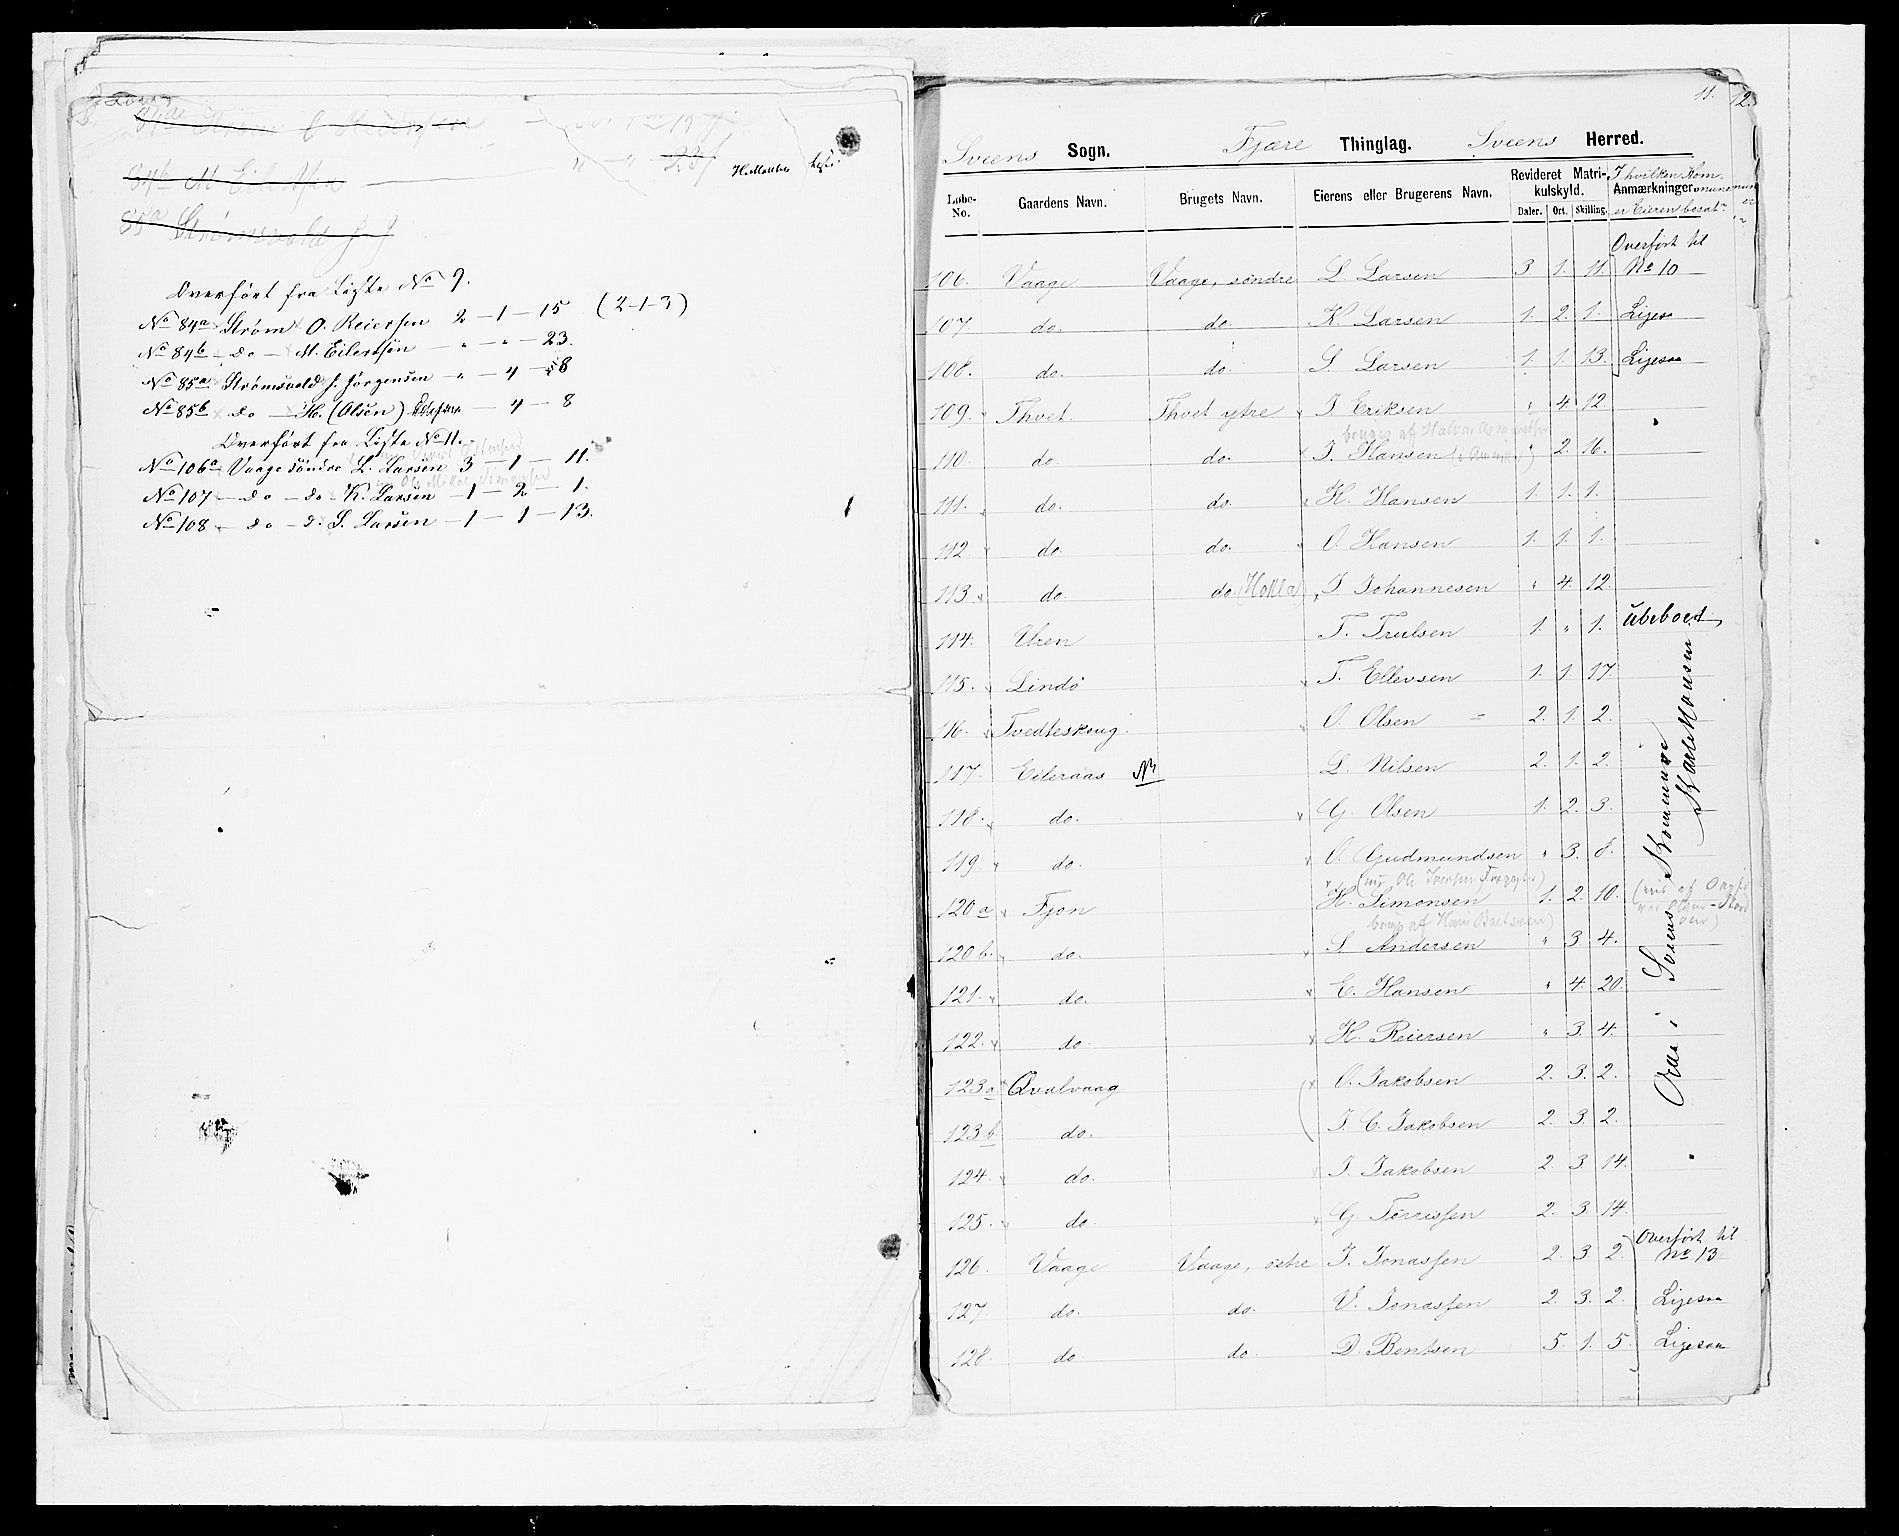 84b M Eilertsen " - " - 23
85a Strømsvold J. J
Overført fra Liste No 9.
No 84a Strøm O. Reiersen 2 - 1 - 15 (2-1-3)
No 84b - do - M. Eilertsen - " - " - 23.
No 85a Strømsvold J. Jørgensen - " - 4 - 8
No 85b - do - H. (Olsen) - 4 - 8
Overført fra Liste No 11.
No 106a Vaage söndre L. Larsen 3 - 1 - 11.
No 107 - do - do K. Larsen - 1 - 2 - 1.
No 108 - do - d. S. Larsen - 1 - 1 - 13.
11. 12.
Sveens Sogn. Fjære Thinglag. Sveens Herred.
Løbe-No. Gaardens Navn. Brugets Navn. Eierens eller Brugerens Navn. Revideret Matrikulskyld. Daler. Ort. Skilling. Anmærkninger
I hvilken Kommune er Eieren bosat
106. Vaage Vaage, søndre L Larsen 3 1. 11. Overført til No 10
107. do. do. K Larsen 1. 2. 1. Ligesaa
108. do. do. S. Larsen 1. 1. 13. Ligesaa
109. Thvet Thvet ytre I Eriksen " 4. 12.
bruges af Halvor Asmundsen
110. do. do. I. Hansen " 2. 16.
111. do. do. H. Hansen 1. 1. 1.
112. do. do. O. Hansen 1. 1. 1.
113. do. do. (Hokla) I Johannesen " 4. 12
114. Uren T. Trulsen 1. " 1. ubeboet
115. Lindö T. Ellevsen 1. 1. 17.
116. Tvedteskoug. O. Olsen = 2. 1. 2.
117. Eileraas N L. Nilsen 2. 1. 2.
118. do. G. Olsen 1. 2. 3.
119. do. O. Gudmundsen " 3. 8.
120a Fjon H. Simonsen 1. 2. 10.
120b. do. S. Andersen " 3. 4.
121. do. E. Hansen " 4. 20.
122. do. H. Reiersen " 3. 4.
123a. Qvalvaag O. Jakobsen 2. 3. 2.
123b do. I. C. Jakobsen 2. 3. 2.
124. do. I. Jakobsen 2. 3 14.
125. do. G. Tørrissen 2. 3 14.
126. Vaage Vaage, østre I. Jonassen 2. 3. 2. Overført til No 13
127. do. do. V. Jonassen 2. 3. 2. Ligesaa
128. do. do. D. Bentsen 5. 1. 5. Ligesaa
i Sveens Kommune